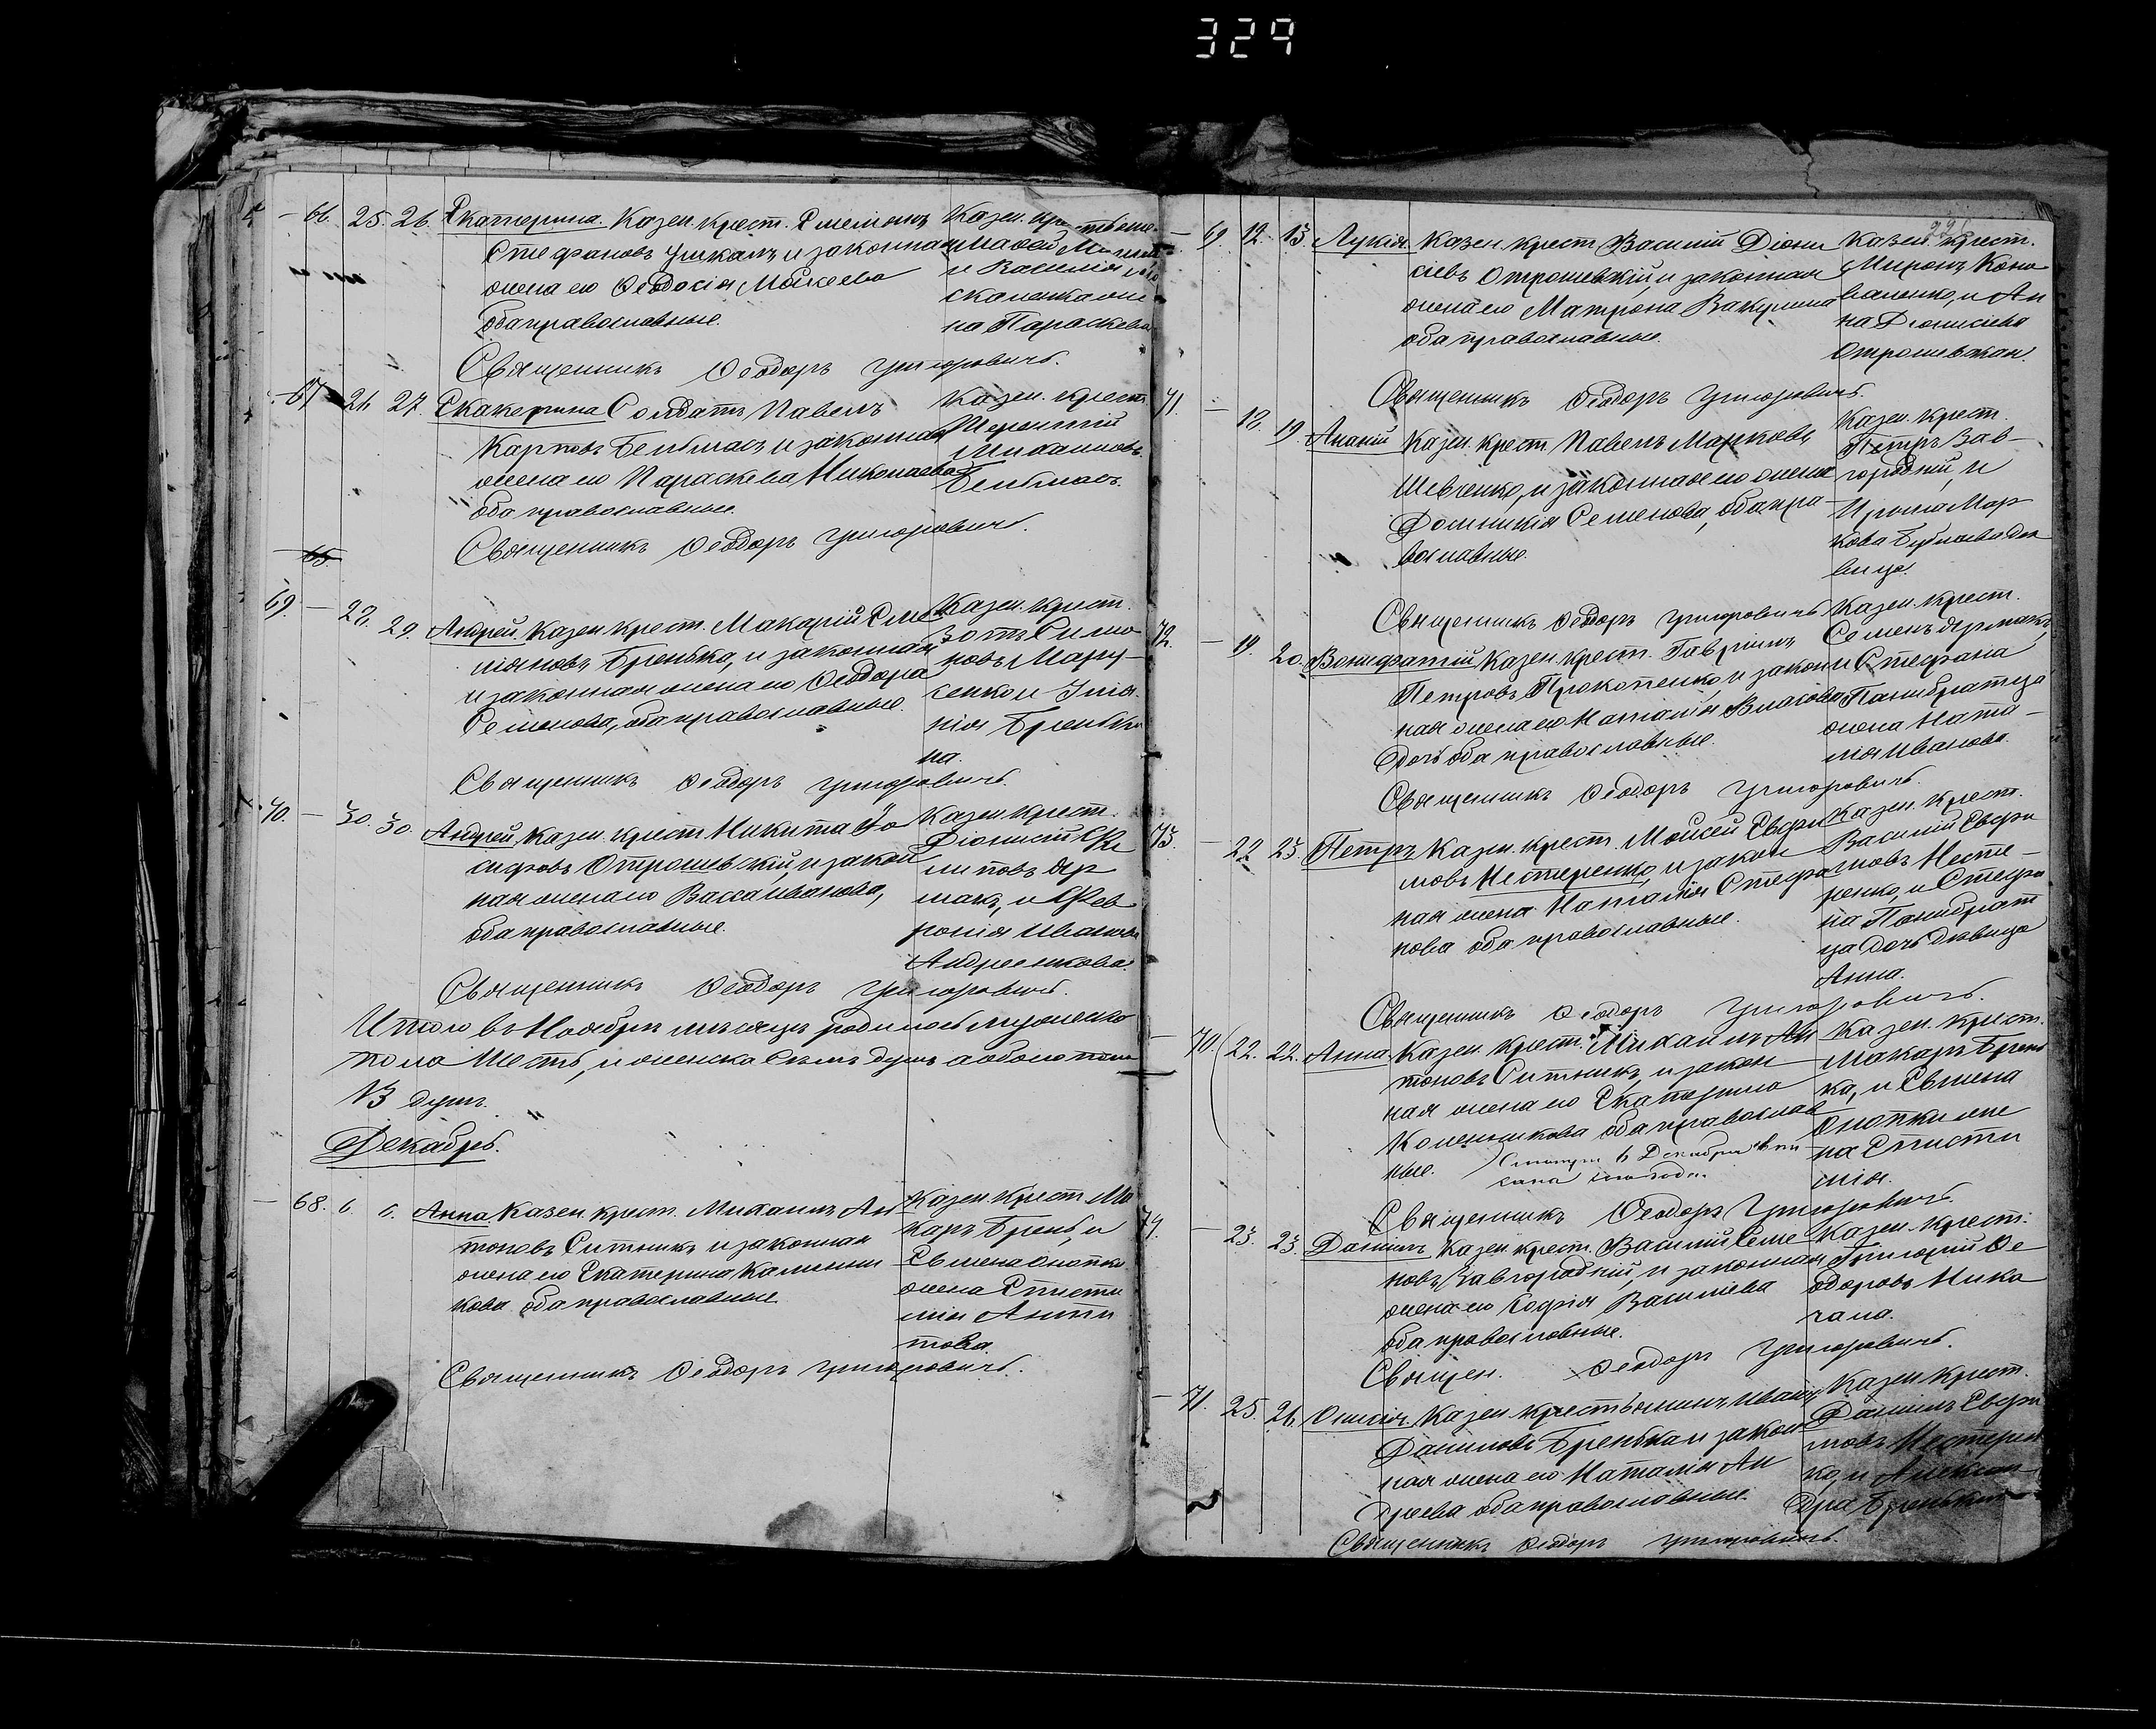 329
66. 25. 26. Екатерина. Казен. крест. Емеліанъ
Стефановъ и законная
жена его Ѳеодосія Мокеева
оба православные.
Казен.
и Василія
на Параскева
Священникъ Ѳеодоръ Григоровичъ.
67 26 27. Екатерина Солдатъ Павелъ
Карповъ Бельмасъ и законная
жена его Параскева Николаева
оба православные.
Казен. крест.
Терентій
Михаиловъ
Бельмасъ.
Священникъ Ѳеодоръ Григоровичъ.
69. 28. 29. Андрей, Казен. крест. Макарій Еме
ліановъ Бренька, и законная
и законная жена его Ѳеодора
Семенова, оба православные.
Казен. крест.
Зотъ Симо
новъ Мару-
сенко и Улія
нія Бреньки
на.
Священникъ Ѳеодоръ Григоровичъ.
70. 30. 30. Андрей, Казен. крест. Никита Іо
сифовъ Отрошевскій, и закон
ная жена его Васса Иванова,
оба православные.
Казен. крест.
Діонисій Фи
липовъ Яр
макъ, и Фев
ронія Иванова
Андреенкова.
Священникъ Ѳеодоръ Григоровичъ.
Итого въ Ноябрѣ мѣсяцѣ родилось мужеска
пола Шесть, и женска Семь душъ а обоего пола
13 душъ.
Декабрь.
68. 6. 6. Анна Казен. крест. Михаилъ Ан
тоновъ Ситникъ и законная
жена его Екатерина Калени
кова оба православные
Казен. крест. Ма
каръ Брень, и
жена Еписти
мія Анти
пова.
Священникъ Ѳеодоръ Григоровичъ.
69. 12. 13. Лукія. Казен. крест. Василій Діони
сіевъ Отрошевскій, и законная
жена его Матрона Вакулина
оба православные.
Казен. крест.
Миронъ Коно
валенко, и Ан
на Діонисіева
Отрошевская.
Священникъ Ѳеодоръ Григоровичъ.
71. 18. 19. Ананій Казен. крест. Павелъ Марковъ
Шевченко, и законная его жена
Домникія Семенова, оба пра
вославные.
Казен. крест.
Петръ Зав-
городній, и
Ирина Мар
кова
вица.
Священникъ Ѳеодоръ Григоровичъ
72. 19. 20. Вонифатій Казен. крест. Гавріилъ
Петровъ Прокопенко и закон
ная жена его Наталія Власова
оба православные.
Казен. крест.
Семенъ Ярмакъ,
и Стефана
Панибратца
жена Ната-
лія Иванова.
Священникъ Ѳеодоръ Григоровичъ.
73. 22 23. Петръ Казен. крест. Моисей Евфи
мовъ Нестеренко, и закон
ная жена Наталія Стефа
нова оба православные.
Казен. крест.
Василій Евфи
мовъ Несте-
ренко, и Стефа
на Панибрат
ца дочь дѣвица
Анна.
Священникъ Ѳеодоръ Григоровичъ.
70. 22. 22. Анна. Казен. крест. Михаилъ Ан
тоновъ Ситникъ, и закон
ная жена его Екатерина
Коленикова оба православ
ные.
Казен. крест.
Макаръ Брень
ка, и
же
на Еписти
мія.
Священникъ Ѳеодоръ Григоровичъ.
74. 23. 23. Даніилъ Казен. крест. Василій Семе
новъ Завгородній, и законная
жена его Софія Василіева
оба православные.
Казен. крест.
Григорій Ѳе
одоровъ Ника
Священ. Ѳеодоръ Григоровичъ.
71. 25. 26. Казен. крестьянинъ Иванъ
Даниловъ Бренька и закон
ная жена его Наталія Ан
дреева оба православные.
Казен. крест.
Даніилъ Евфи
мовъ Нестерен
ко, и Алексан-
дра Бренькина
Священникъ Ѳеодоръ Григоровичъ.